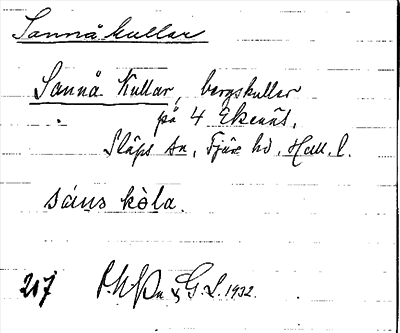 Sannå kullar
Sannå Kullar, bergskullar
på 4 Ekenäs,
Släps sn, Fjäre hd, Hall. l.
sáns kòla.
217 G. L. 1932.